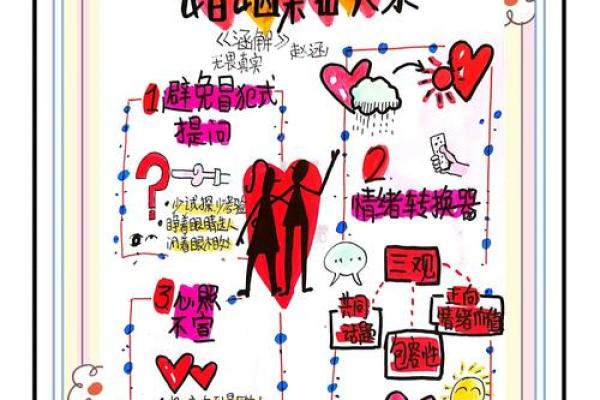 《涵解》 赵涵
无畏真实
1 避免冒犯式
提问
·少试探少考验
·睁着眼睛选人
闭着眼
2
情绪转换器
三观
共同
话题
正向
情绪价值
包容性
3 心照
不宣